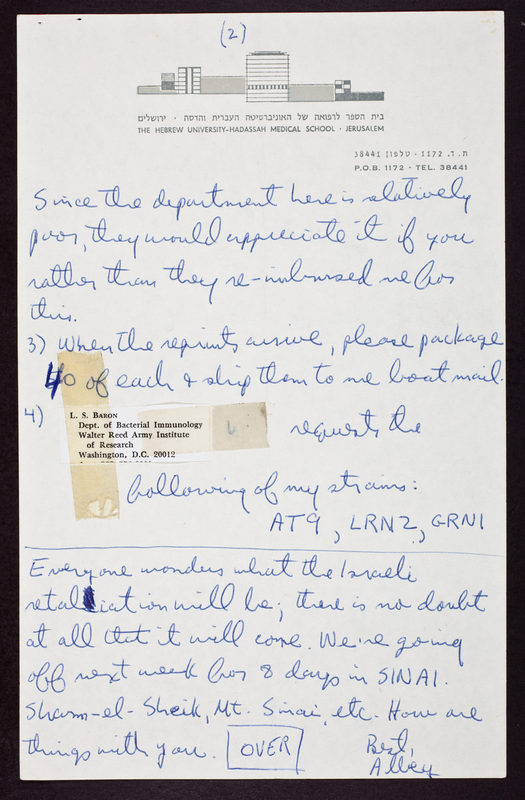 (2)
בית הספר לרפואה של האוניברסיטה העברית והדסה · ירושלים
THE HEBREW UNIVERSITY-HADASSAH MEDICAL SCHOOL · JERUSALEM
ת. ד. 1172 · טלפון 38441
P.O.B. 1172 · TEL. 38441
Since the department here is relatively
poor, they would appreciate it if you
rather than they re-imbursed me for
this.
3) When the reprints arrive, please package
40 of each & ship them to me boat mail.
4)
L. S. BARON
Dept. of Bacterial Immunology
Walter Reed Army Institute
of Research
Washington, D.C. 20012
requests the
following of my strains:
AT9, LRN2, GRN1
Everyone wonders what the Israeli
retaliation will be; there is no doubt
at all that it will come. We're going
off next week for 8 days in SINAI.
Sharm-el-Sheik, Mt. Sinai, etc. How are
things with you. OVER
Best,